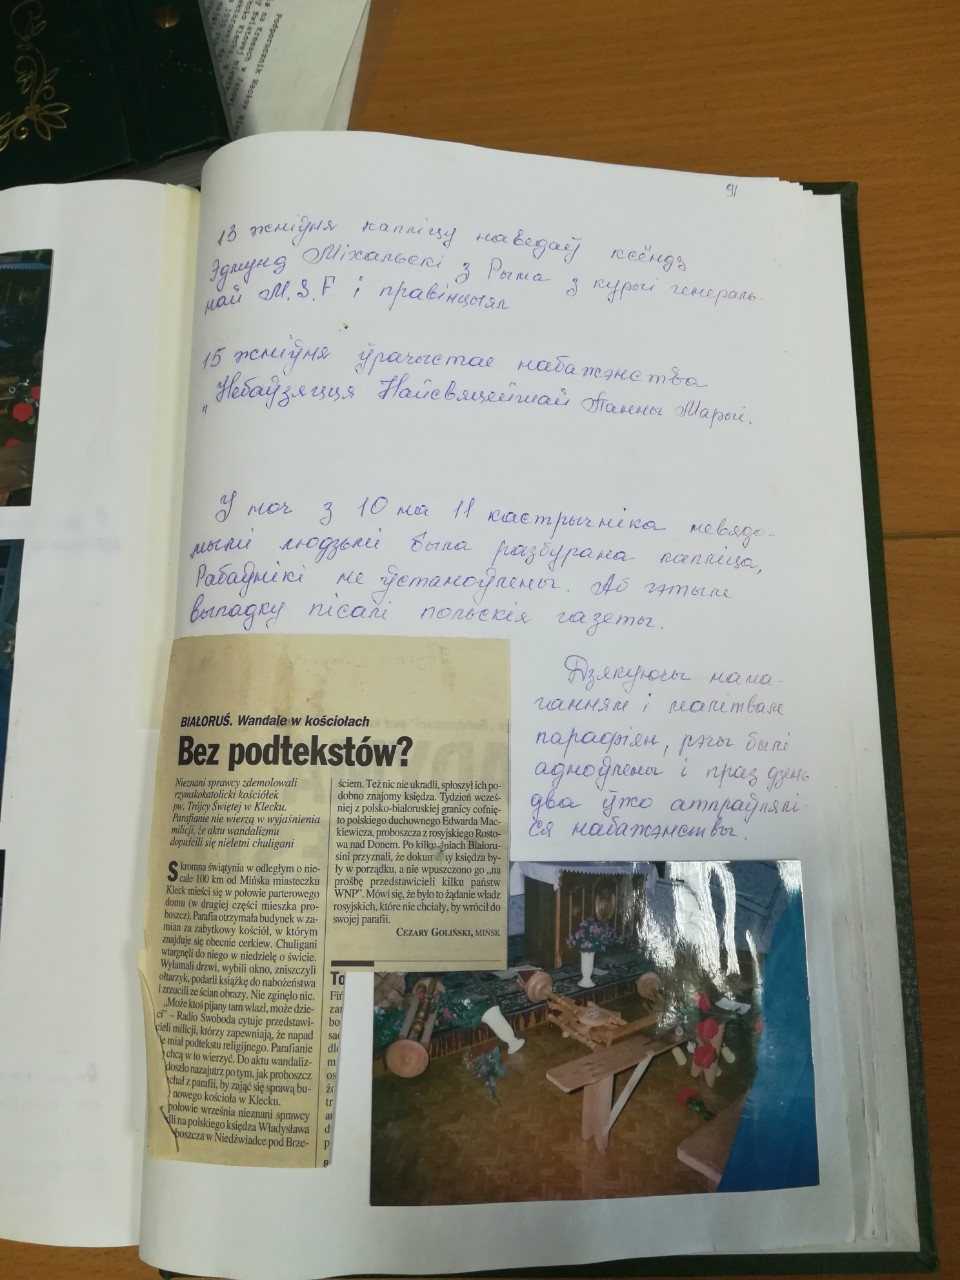 91
13 жніўня капліцу наведаў ксёндз
Эдмунд Міхальскі з Рыма з курыі генераль-
най M.S.F і правінцыял
15 жніўня ўрачыстае набажэнства
"Небаўзяцця Найсвяцейшай Панны Марыі.
У ноч з 10 на 11 кастрычніка невядо-
мымі людзьмі была разбурана капліца,
Рабаўнікі не ўстаноўлены. Аб гэтым
выпадку пісалі польскія газеты.
Дзякуючы нама-
ганням і малітвам
парафіян, рэчы былі
адноўлены і праз дзень
два ўжо атпраўлялі-
ся набажэнствы.
BIAŁORUŚ. Wandale w kościołach
Bez podtekstów?
Nieznani sprawcy zdemolowali
rzymskokatolicki kościółek
pw. Trójcy Świętej w Klecku.
Parafianie nie wierzą w wyjaśnienia
milicji, że aktu wandalizmu
dopuścili się nieletni chuligani
Skromna świątynia w odległym o nie-
całe 100 km od Mińska miasteczku
Kleck mieści się w połowie parterowego
domu (w drugiej części mieszka pro-
boszcz). Parafia otrzymała budynek w za-
mian za zabytkowy kościół, w którym
znajduje się obecnie cerkiew. Chuligani
wtargnęli do niego w niedzielę o świcie.
Wyłamali drzwi, wybili okno, zniszczyli
ołtarzyk, podarli książkę do nabożeństwa
i zrzucili ze ścian obrazy. Nie zginęło nic.
„Może ktoś pijany tam wlazł, może dzie-
ci” – Radio Swoboda cytuje przedstawi-
cieli milicji, którzy zapewniają, że napad
miał podtekstu religijnego. Parafianie
chcą w to wierzyć. Do aktu wandaliz-
doszło nazajutrz po tym, jak proboszcz
chał z parafii, by zająć się sprawą bu-
nowego kościoła w Klecku.
połowie września nieznani sprawcy
dli na polskiego księdza Władysława
boszcza w Niedźwiadce pod Brze-
ściem. Też nic nie ukradli, spłoszył ich po-
dobno znajomy księdza. Tydzień wcześ-
niej z polsko-białoruskiej granicy cofnię-
to polskiego duchownego Edwarda Mac-
kiewicza, proboszcza z rosyjskiego Rosto-
wa nad Donem. Po kilku dniach Białoru-
sini przyznali, że dokumenty księdza by-
ły w porządku, a nie wpuszczono go „na
prośbę przedstawicieli kilku państw
WNP”. Mówi się, że było to żądanie władz
rosyjskich, które nie chciały, by wrócił do
swojej parafii.
CEZARY GOLIŃSKI, MIŃSK